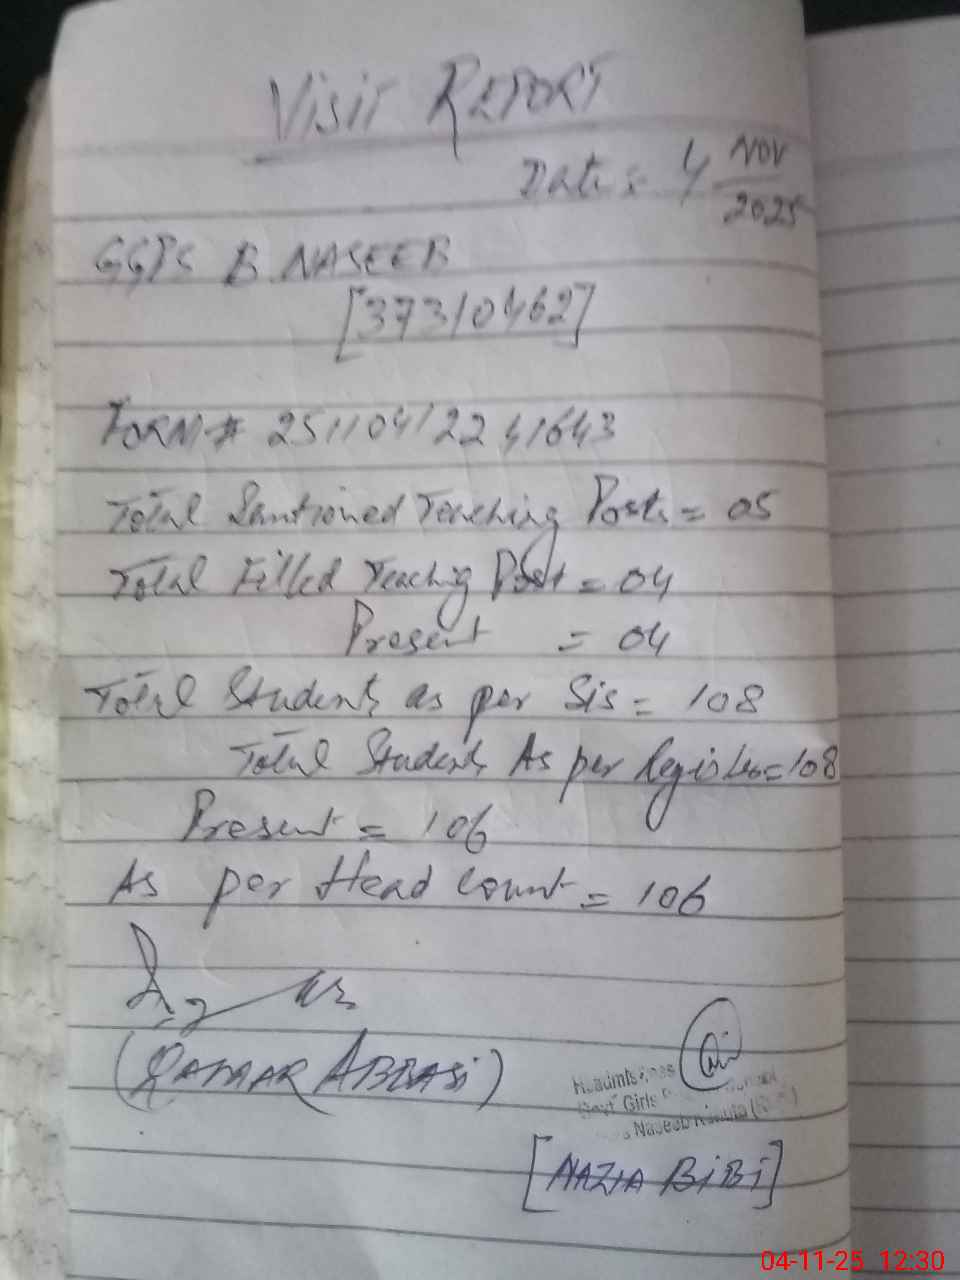 VISIT REPORT
Date = 4 NOV
2025
GGPS B. NASEEB
[37310462]
FORM # 25110412241643
Total Santioned Teaching Posts = 05
Total Filled Teaching Post = 04
Present = 04
Total Students as per Sis = 108
Total Students As per Register = 108
Present = 106
As per Head Count = 106
(QAMAR ABBASi)
Headmistress
Govt Girls
Naseeb
[NAZIA BiBi]
04-11-25 12:30